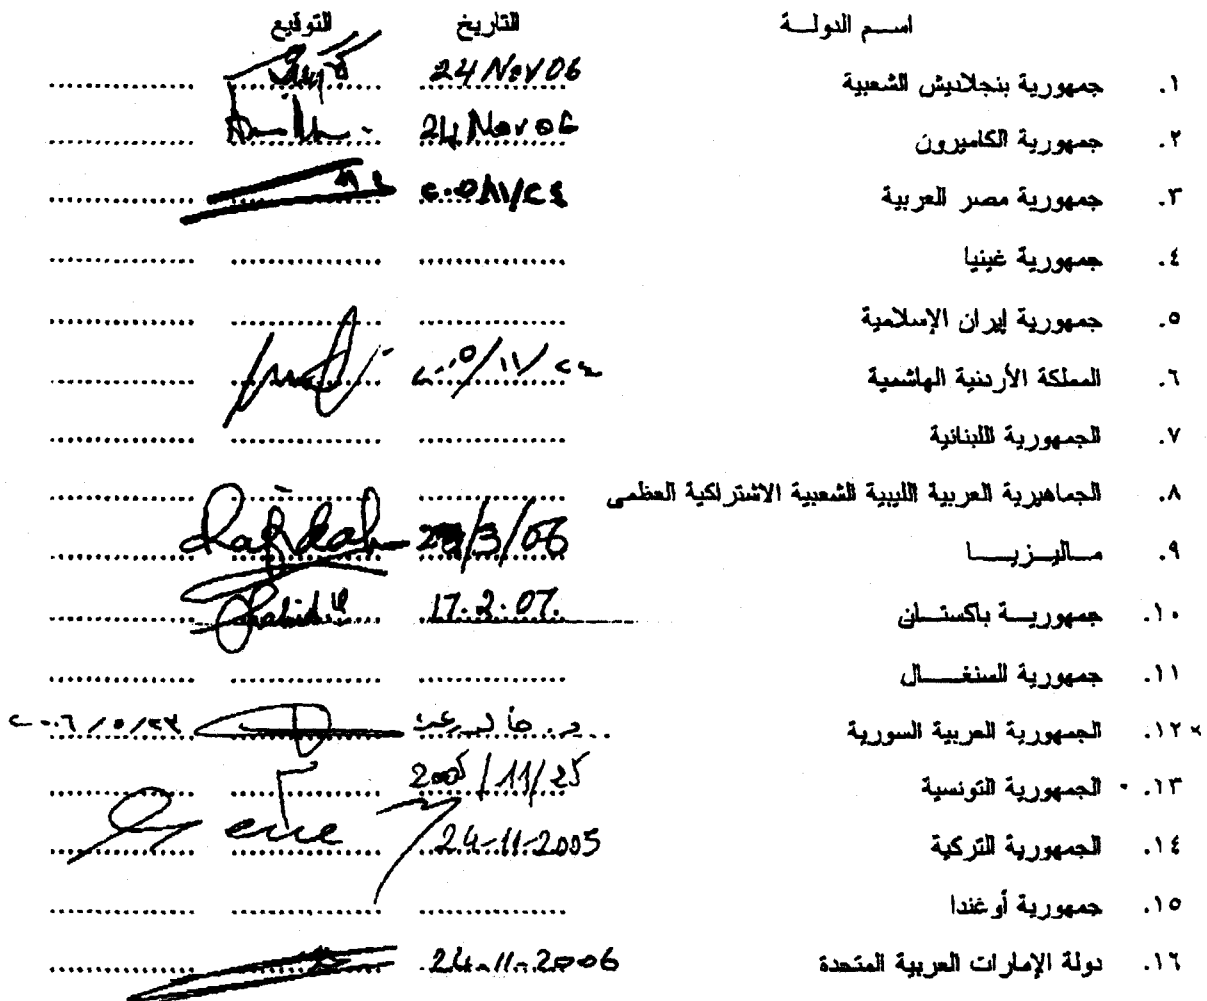 اســم الدولــة التاريخ التوقيع
١. جمهورية بنجلاديش الشعبية 24 Nov 06
٢. جمهورية الكاميرون 24 Nov 06
٣. جمهورية مصر العربية ٢٠٠٥/١١/٢٤
٤. جمهورية غينيا
٥. جمهورية إيران الإسلامية
٦. المملكة الأردنية الهاشمية ٢٠٠٥/١١/٢٤
٧. الجمهورية اللبنانية
٨. الجماهيرية العربية الليبية الشعبية الاشتراكية العظمى
٩. مــاليــزيــــا /3/06
١٠. جمهوريــة باكستــان 17.2.07.
١١. جمهورية السنغــــال
١٢. الجمهورية العربية السورية ٢٠٠٦/٥/٢٣
١٣. الجمهورية التونسية 2005/11/25
١٤. الجمهورية التركية 24-11-2005
١٥. جمهورية أوغندا
١٦. دولة الإمارات العربية المتحدة 24-11-2006